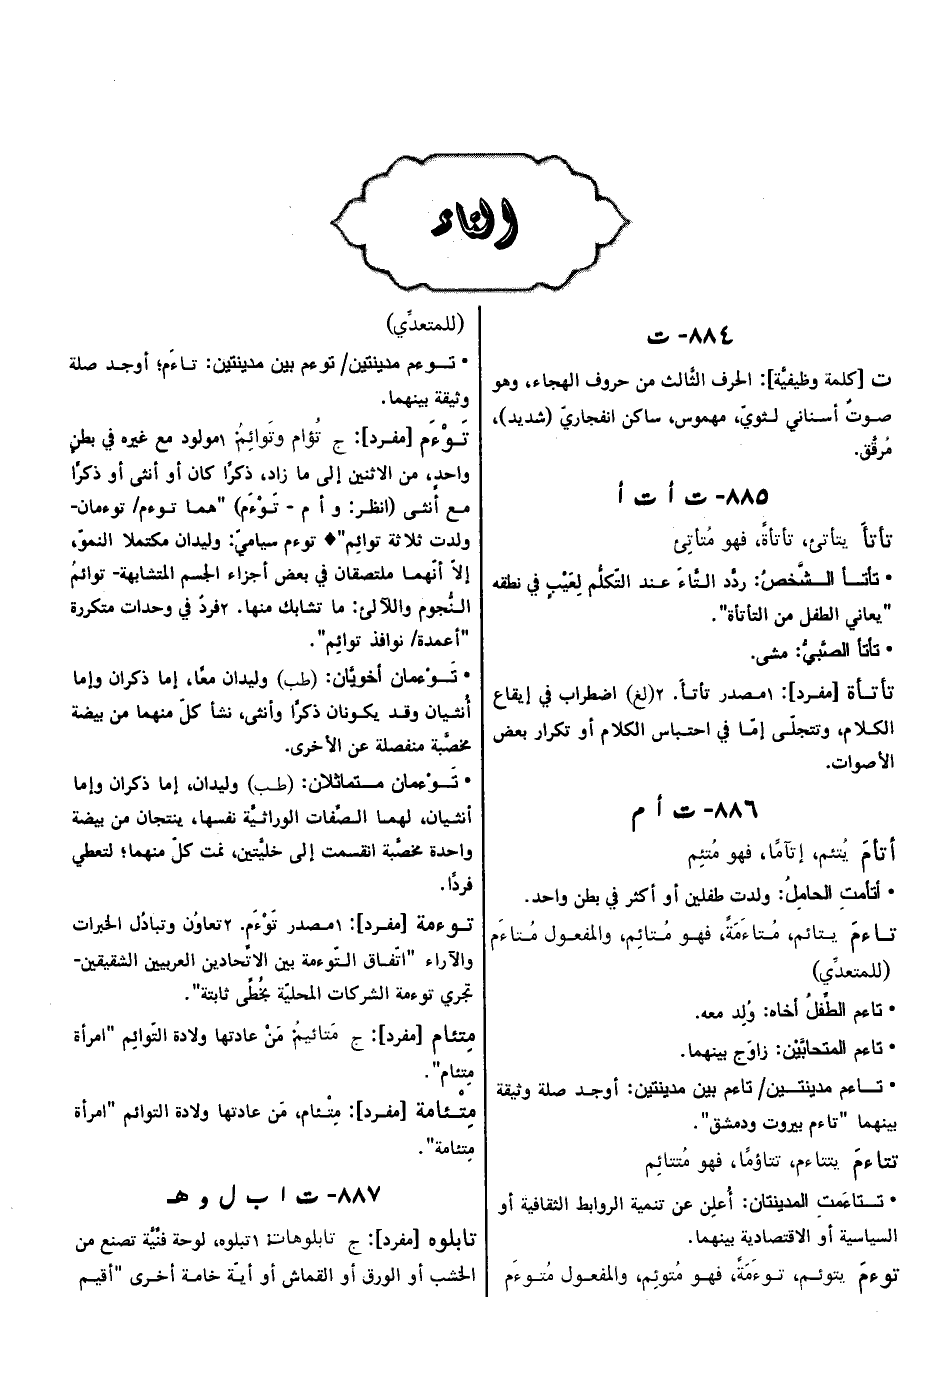 التاء
٨٨٤- ت
ت [كلمة وظيفيَّة]: الحرف الثَّالث من حروف الهجاء، وهو
صوتٌ أسناني لثويّ، مهموس، ساكن انفجاريّ (شديد)،
مُرقَّق.
٨٨٥- ت أ ت أ
تأتأَ يتأتئ، تأتأةً، فهو مُتأتِئ
• تأتـأ الـشَّخصُ: ردَّد الـتَّاءَ عـند التّكلُّم لِعَيْبٍ في نطقه
"يعاني الطفل من التأتأة".
• تأتأ الصَّبيُّ: مشى.
تأتـأة [مفرد]: ١مـصدر تأتـأَ. ٢(لغ) اضطراب في إيقاع
الكـلام، وتتجلّـى إمّـا في احتـباس الكلام أو تكرار بعض
الأصوات.
٨٨٦- ت أ م
أتأمَ يُتئم، إتآمًا، فهو مُتئِم
• أتأمتِ الحاملُ: ولدت طفلين أو أكثر في بطن واحد.
تـاءمَ يـتائم، مُـتاءَمَةً، فهـو مُـتائِم، والمفعول مُـتاءَم
(للمتعدِّي)
• تاءم الطِّفلُ أخاه: وُلِد معه.
• تاءم المتحابَّيْن: زاوَج بينهما.
• تــاءم مدينتــين/ تاءم بين مدينتين: أوجـد صلة وثيقة
بينهما "تاءم بيروت ودمشق".
تتاءمَ يتتاءم، تتاؤمًا، فهو مُتتائِم
• تــتاءَمَتِ المدينتان: أُعلِن عن تنمية الروابط الثقافية أو
السياسية أو الاقتصادية بينهما.
توءمَ يتوئـم، تـوءَمَةً، فهـو مُتوئِم، والمفعول مُتـوءَم
(للمتعدِّي)
• تــوءم مدينتين/ توءم بين مدينتين: تـاءَم؛ أوجـد صلة
وثيقة بينهما.
تَـوْءَم [مفرد]: ج تُؤام وتَوائِمُ: ١مولود مع غيره في بطنٍ
واحدٍ، من الاثنين إلى ما زاد، ذكرًا كان أو أنثى أو ذكرًا
مـع أنثـى (انظر: و أ م - تَوْءَم) "هما تـوءم/ توءمان-
ولدت ثلاثة توائم"♦ توءم سياميّ: وليدان مكتملا النموّ،
إلاّ أنّهمـا ملتصقان في بعض أجزاء الجسم المتشابهة- توائمُ
النُّجوم واللآلئ: ما تشابك منها. ٢فردٌ في وحدات متكررة
"أعمدة/ نوافذ توائِم".
• تَـوْءمان أخويَّان: (طب) وليدان معًا، إما ذكران وإما
أُنثـيان وقـد يكـونان ذكرًا وأنثى، نشأ كلّ منهما من بيضة
مخصَّبة منفصلة عن الأخرى.
• تَــوْءمان مــتماثلان: (طـب) وليدان، إما ذكران وإما
أنثـيان، لهمـا الـصِّفات الوراثـيَّة نفسها، ينتجان من بيضة
واحدة مخصَّبة انقسمت إلى خليَّتين، نمت كلّ منهما؛ لتعطي
فردًا.
تـوءمة [مفرد]: ١مـصدر تَوْءَمَ. ٢تعاوُن وتبادُل الخبرات
والآراء "اتّفـاق الـتّوءمة بين الاتِّحادين العربيين الشقيقين-
تجري توءمة الشركات المحليّة بخُطًى ثابتة".
مِتئام [مفرد]: ج مَتائيمُ: مَنْ عادتها ولادة التّوائِم "امرأة
مِتئام".
مِتْـئامة [مفـرد]: مِتْـئام، مَن عادتها ولادة التوائم "امرأة
مِتئامة".
٨٨٧- ت ا ب ل و هـ
تابلوه [مفرد]: ج تابلوهات: ١تبلوه، لوحة فنّيَّة تصنع من
الخشب أو الورق أو القماش أو أيـّة خامـة أخرى "أقيم